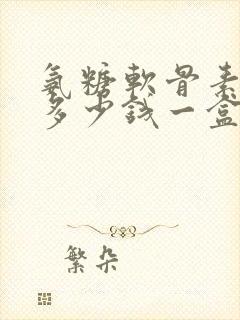 氨糖軟骨素
多少錢一盒
繁朵